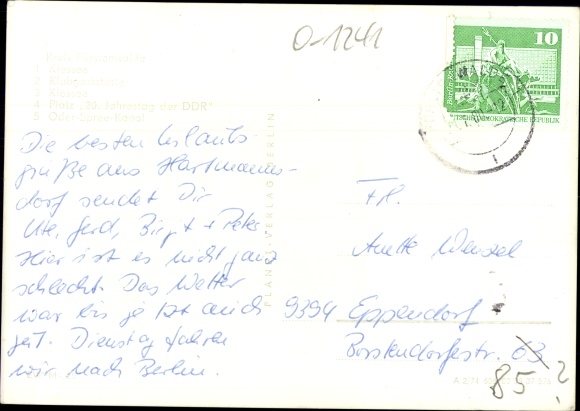 O-1241
10
DEUTSCHE DEMOKRATISCHE REPUBLIK
WALD
1
2
3 Klassee
4 Platz „20. Jahrestag der DDR"
5 Oder-Spree-Kanal
PLANET-VERLAG BERLIN
Die besten Urlaubs
grüße aus Hartmanns-
dorf sendet Dir
Ute, Gerd, Birgit + Peter.
Hier ist es nicht ganz
schlecht. Das Wetter
war bis jetzt auch
gut. Dienstag fahren
wir nach Berlin.
Frl.
Anette Wenzel
9394 Eppendorf
Borstendorfestr. 63
85?